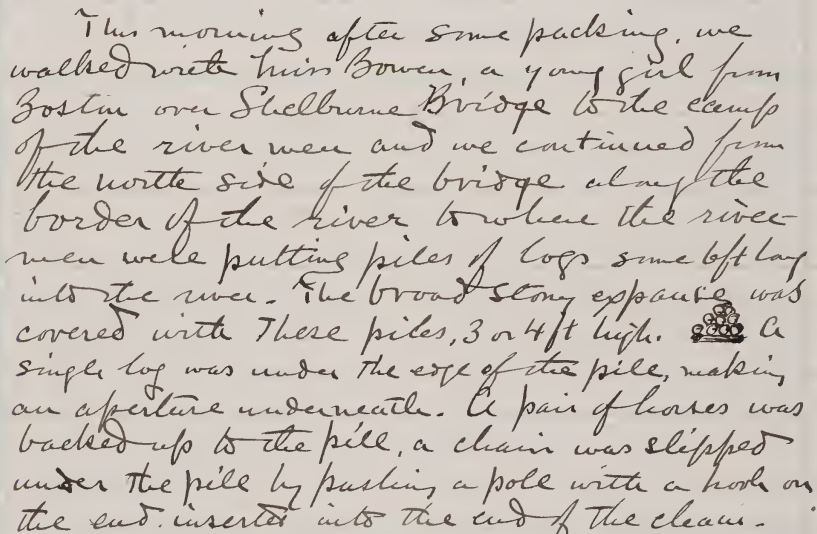 This morning after some packing, we
walked with Miss Bowen, a young girl from
Boston over Shelburne Bridge to the camp
of the river men and we continued from
the north side of the bridge along the
border of the river to where the river-
men were putting piles of logs some 6 ft long
into the river. The broad stony expanse was
covered with these piles, 3 or 4 ft high. A
single log was under the edge of the pile, making
an aperture underneath. A pair of horses was
backed up to the pile, a chain was slipped
under the pile by pushing a pole with a hook on
the end inserted into the end of the chain.